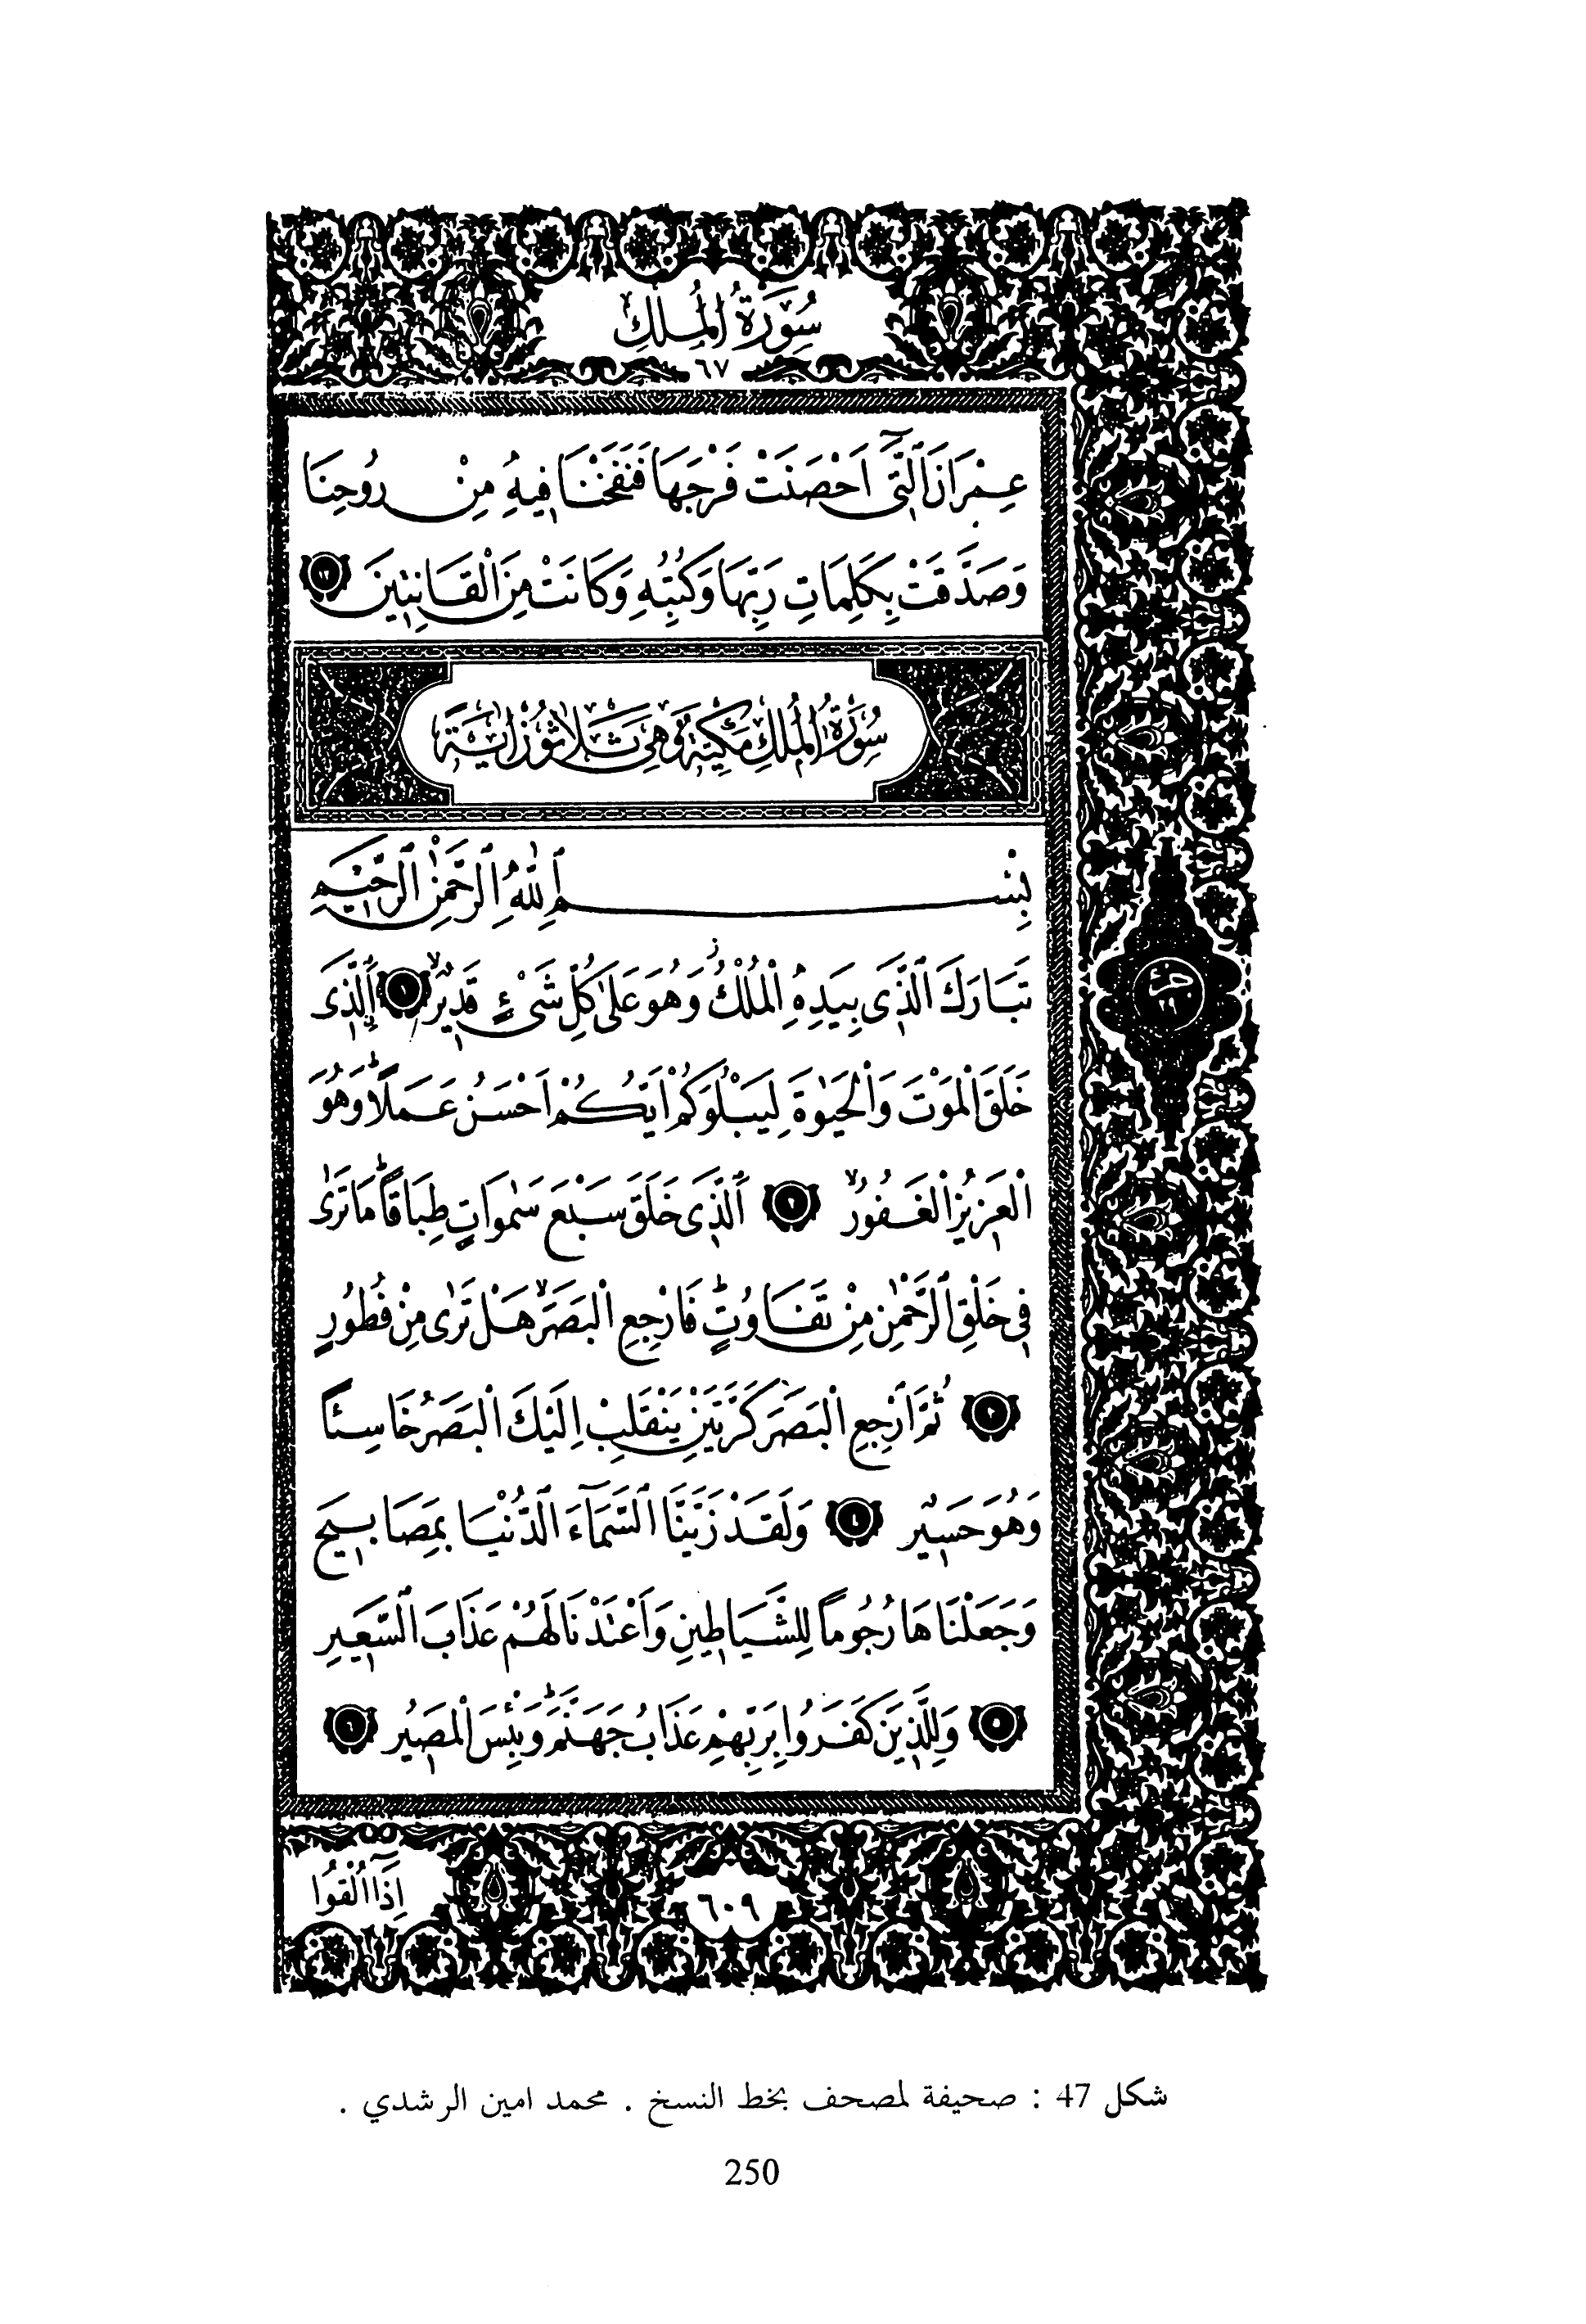 سُورَةُ الْمُلْكِ
٦٧
عِمْرَانَ الَّتٖٓى اَحْصَنَتْ فَرْجَهَا فَنَفَخْنَا فٖيهِ مِنْ رُوحِنَا
وَصَدَّقَتْ بِكَلِمَاتِ رَبِّهَا وَكُتُبِهٖ وَكَانَتْ مِنَ الْقَانِتٖينَ ١٢
سُورَةُ الْمُلْكِ مَكِّيَّةٌ وَهِىَ ثَلَاثُونَ اٰيَةً
بِسْمِ اللّٰهِ الرَّحْمٰنِ الرَّحٖيمِ
تَبَارَكَ الَّذٖى بِيَدِهِ الْمُلْكُ وَهُوَ عَلٰى كُلِّ شَىْءٍ قَدٖيرٌ ١ اَلَّذٖى
خَلَقَ الْمَوْتَ وَالْحَيٰوةَ لِيَبْلُوَكُمْ اَيُّكُمْ اَحْسَنُ عَمَلًا وَهُوَ
الْعَزٖيزُ الْغَفُورُ ٢ اَلَّذٖى خَلَقَ سَبْعَ سَمٰوَاتٍ طِبَاقًا مَا تَرٰى
فٖى خَلْقِ الرَّحْمٰنِ مِنْ تَفَاوُتٍ فَارْجِعِ الْبَصَرَ هَلْ تَرٰى مِنْ فُطُورٍ
٣ ثُمَّ ارْجِعِ الْبَصَرَ كَرَّتَيْنِ يَنْقَلِبْ اِلَيْكَ الْبَصَرُ خَاسِئًا
وَهُوَ حَسٖيرٌ ٤ وَلَقَدْ زَيَّنَّا السَّمَٓاءَ الدُّنْيَا بِمَصَابٖيحَ
وَجَعَلْنَاهَا رُجُومًا لِلشَّيَاطٖينِ وَاَعْتَدْنَا لَهُمْ عَذَابَ السَّعٖيرِ
٥ وَلِلَّذٖينَ كَفَرُوا بِرَبِّهِمْ عَذَابُ جَهَنَّمَ وَبِئْسَ الْمَصٖيرُ ٦
اِذَٓا اُلْقُوا
٦٠٩
شكل 47 : صحيفة لمصحف بخط النسخ . محمد امين الرشدي .
250